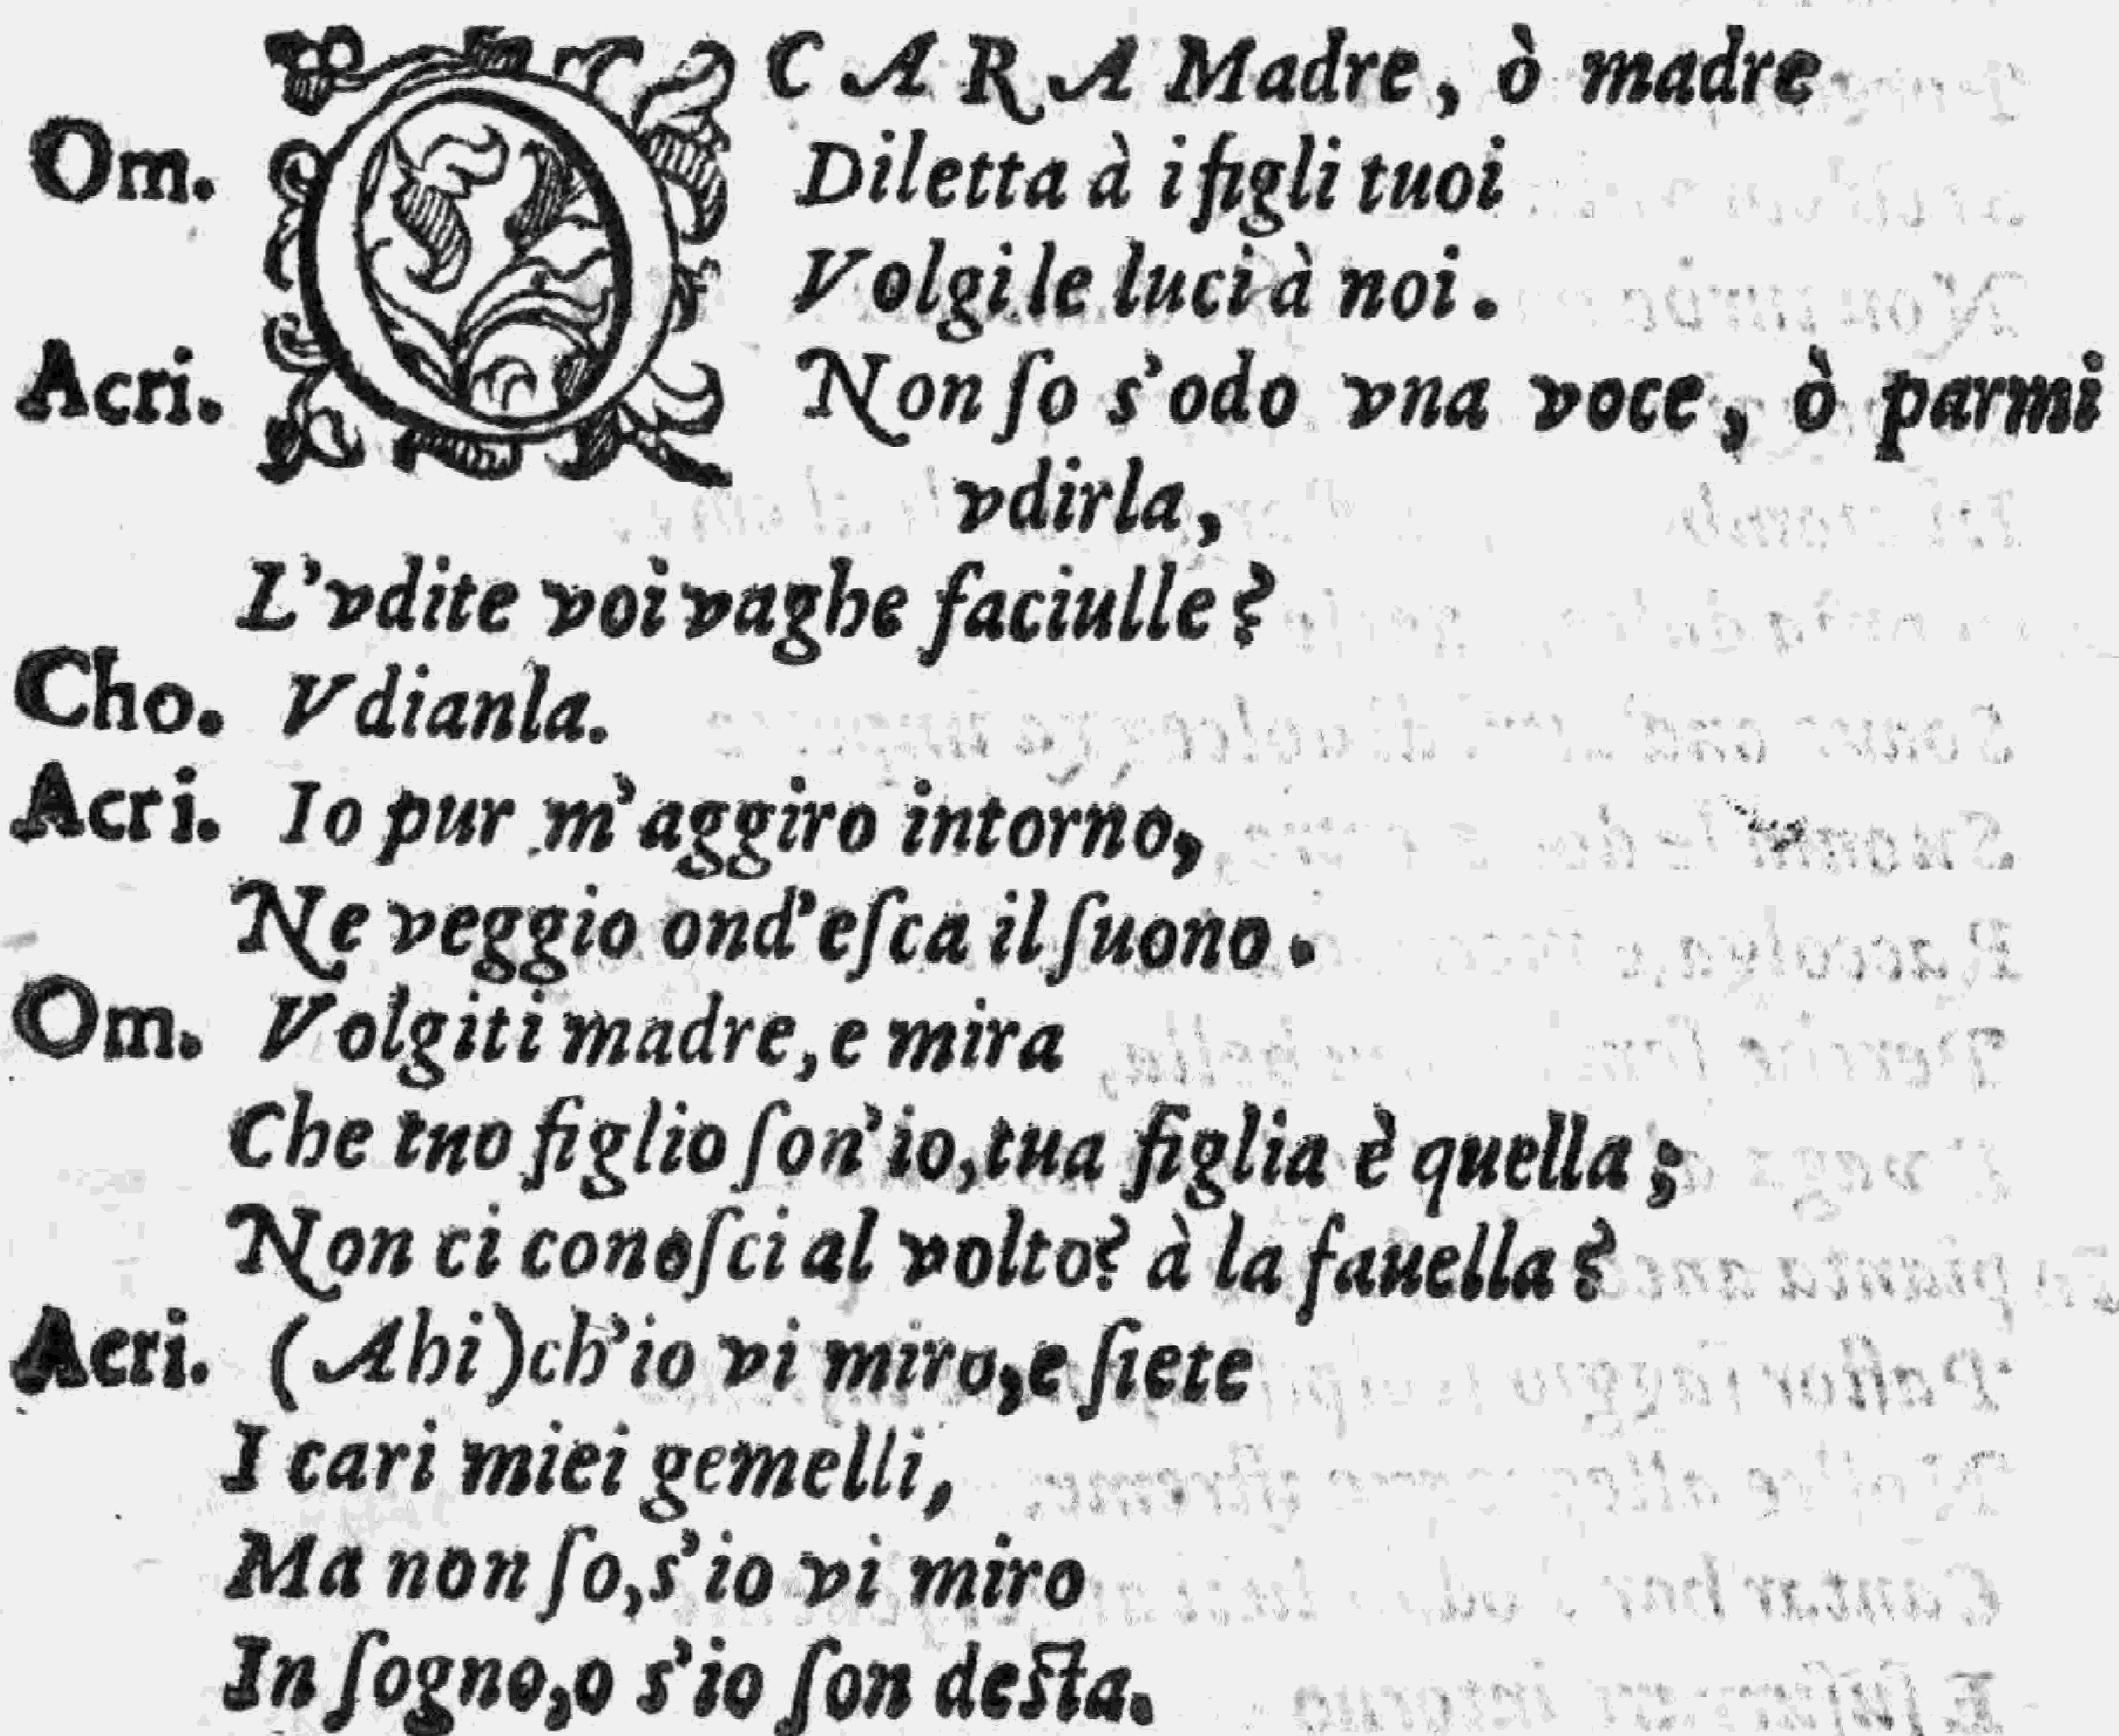 Om. O CARA Madre, ò madre
Diletta à i figli tuoi
Volgi le luci à noi.
Acri. Non ſo s'odo vna voce, ò parmi
vdirla,
L'vdite voi vaghe faciulle?
Cho. Vdianla.
Acri. Io pur m'aggiro intorno,
Ne veggio ond'eſca il ſuono.
Om. Volgiti madre, e mira
Che tno figlio ſon'io, tua figlia è quella;
Non ci conoſci al volto? à la fauella?
Acri. (Ahi) ch'io vi miro, e ſiete
I cari miei gemelli,
Ma non ſo, s'io vi miro
In ſogno, o s'io ſon deſta.